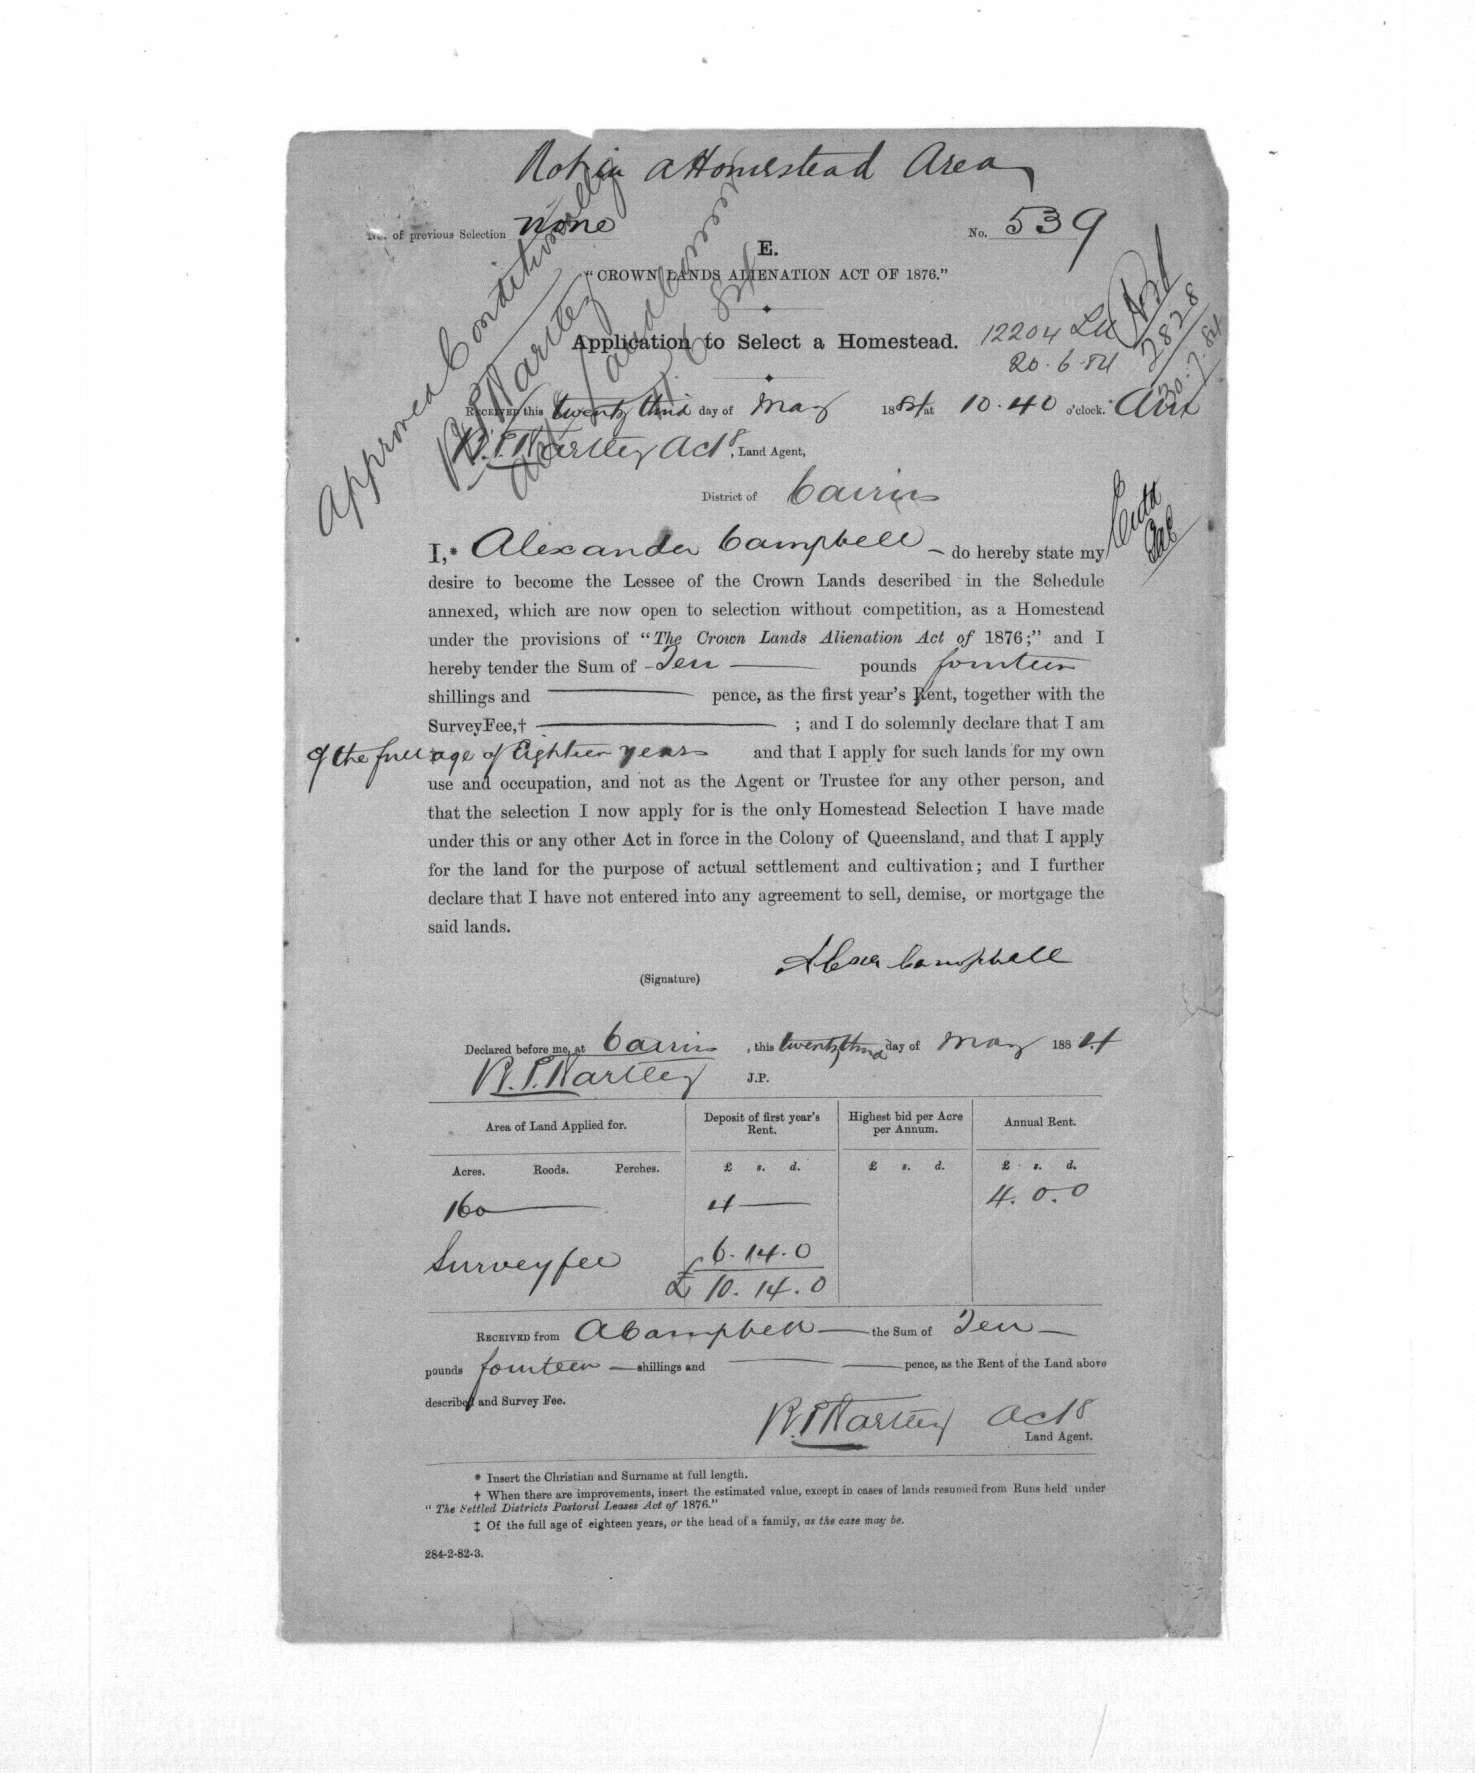 Not in a Homestead Area
No. of previous Selection none
No. 539
E.
"CROWN LANDS ALIENATION ACT OF 1876."
Application to Select a Homestead.
12204
20.6.84
2828
30.7.84
Approved Conditionally
R. T. Hartley
RECEIVED this twenty third day of May 1884 at 10.40 o'clock.
R. T. Hartley Actg, Land Agent,
District of Cairns
I,* Alexander Campbell — do hereby state my
desire to become the Lessee of the Crown Lands described in the Schedule
annexed, which are now open to selection without competition, as a Homestead
under the provisions of "The Crown Lands Alienation Act of 1876;" and I
hereby tender the Sum of – Ten — pounds fourteen
shillings and — pence, as the first year's Rent, together with the
Survey Fee,† — ; and I do solemnly declare that I am
of the full age of Eighteen years and that I apply for such lands for my own
use and occupation, and not as the Agent or Trustee for any other person, and
that the selection I now apply for is the only Homestead Selection I have made
under this or any other Act in force in the Colony of Queensland, and that I apply
for the land for the purpose of actual settlement and cultivation; and I further
declare that I have not entered into any agreement to sell, demise, or mortgage the
said lands.
(Signature) Alexr Campbell
Declared before me, at Cairns, this twenty third day of May 1884
R. T. Hartley J.P.
Area of Land Applied for. Deposit of first year's Rent. Highest bid per Acre per Annum. Annual Rent.
Acres. Roods. Perches. £ s. d. £ s. d. £ s. d.
160 — 4 — 4. 0. 0
Survey fee 6. 14. 0
£ 10. 14. 0
RECEIVED from A Campbell — the Sum of Ten —
pounds fourteen — shillings and — pence, as the Rent of the Land above
described and Survey Fee.
R. T. Hartley Actg
Land Agent.
* Insert the Christian and Surname at full length.
† When there are improvements, insert the estimated value, except in cases of lands resumed from Runs held under
"The Settled Districts Pastoral Leases Act of 1876."
‡ Of the full age of eighteen years, or the head of a family, as the case may be.
284-2-82-3.